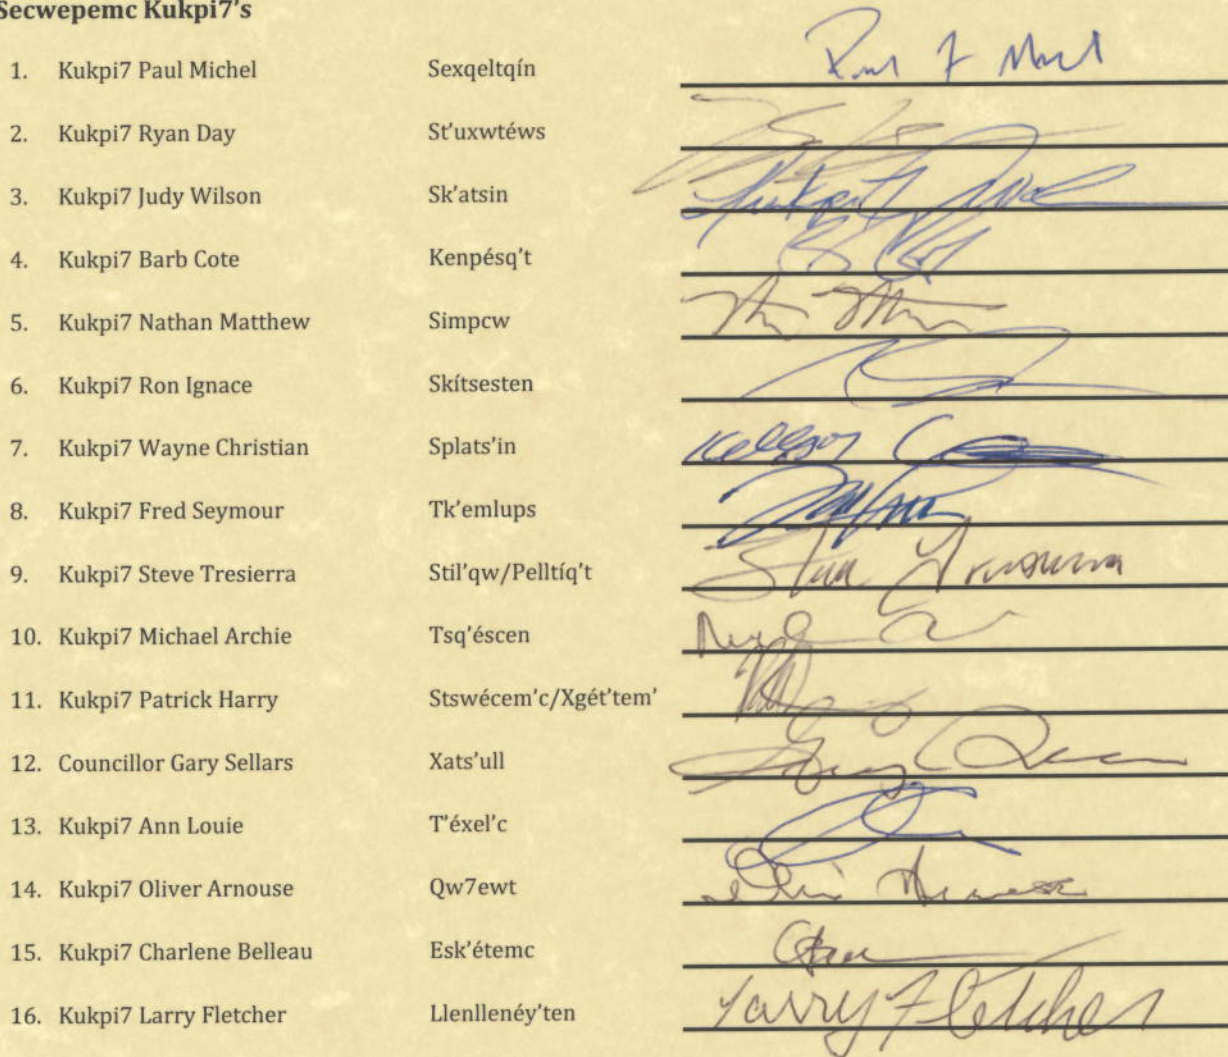 Secwepemc Kukpi7's
1. Kukpi7 Paul Michel Sexqeltqín
2. Kukpi7 Ryan Day St'uxwtéws
3. Kukpi7 Judy Wilson Sk'atsin
4. Kukpi7 Barb Cote Kenpésq't
5. Kukpi7 Nathan Matthew Simpcw
6. Kukpi7 Ron Ignace Skítsesten
7. Kukpi7 Wayne Christian Splats'in
8. Kukpi7 Fred Seymour Tk'emlups
9. Kukpi7 Steve Tresierra Stil'qw/Pelltíq't
10. Kukpi7 Michael Archie Tsq'éscen
11. Kukpi7 Patrick Harry Stswécem'c/Xgét'tem'
12. Councillor Gary Sellars Xats'ull
13. Kukpi7 Ann Louie T'éxel'c
14. Kukpi7 Oliver Arnouse Qw7ewt
15. Kukpi7 Charlene Belleau Esk'étemc
16. Kukpi7 Larry Fletcher Llenllenéy'ten Larry Fletcher